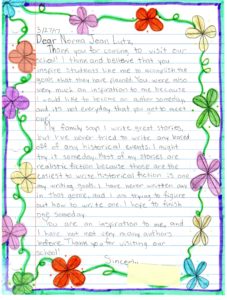 3/27/17
Dear Norma Jean Lutz,
Thank you for coming to visit our
school! I think and believe that you
inspire students like me to accomplish the
goals that they have planed. You were also
very much an inspiration to me because
I would like to become an author someday,
and it's not everyday that you get to meet
one!
My family says I write great stories,
but I've never tried to write any based
off of any historical events. I might
try it someday. Most of my stories are
realistic fiction because those are the
easiest to write. Historical fiction is one
my writing goals. I have never written any
in this genre, and I am trying to figure
out how to write one. I hope to finish
one someday.
You are an inspiration to me, and
I have not met very many authors
before. Thank you for visiting our
school!